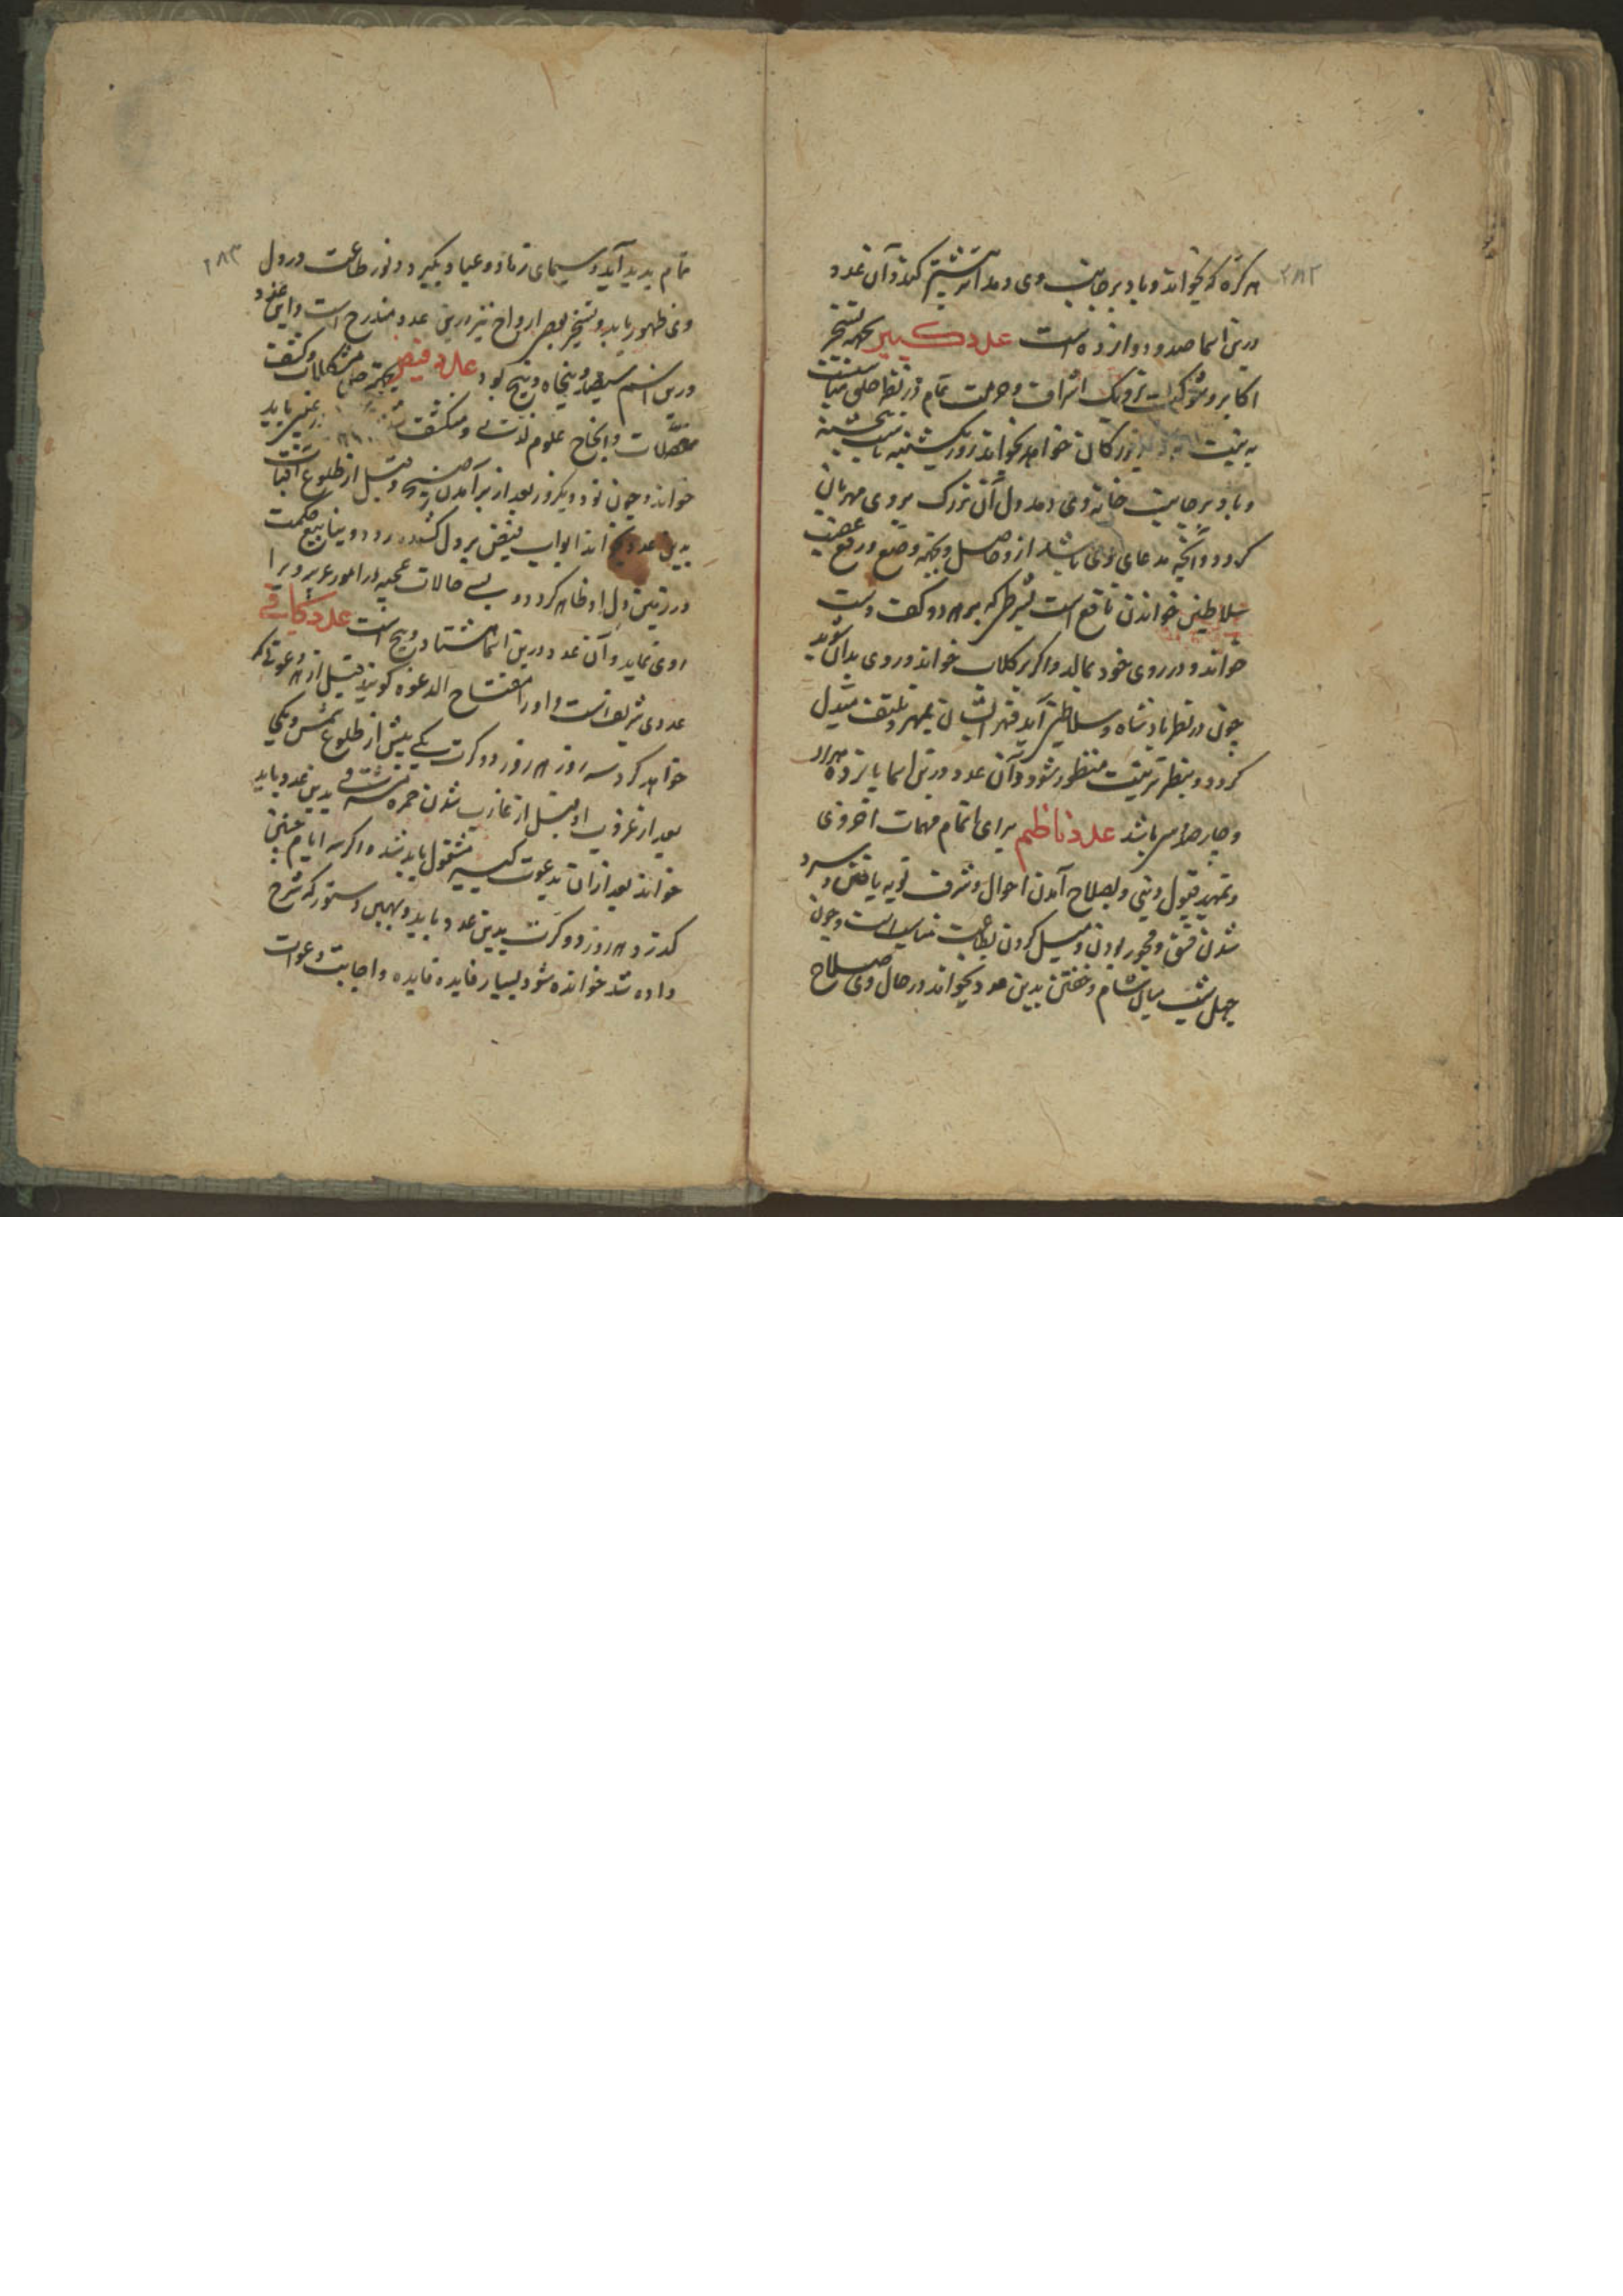 هر کره که بخواند و باد بر جانب وی دمد اثر بیشتر کند و آن عدد
درین اسما صد و دوازده است عدد کبیر بجهة تسخیر
اکابر و شوکت نزدیک اشراف و حرمت تمام در نظر
به نیت بزرگان خواهد بخواند روز یکشنبه تا پنجشنبه
و باد بر جانب خانه وی دمد دل آن بزرگ بروی مهربان
کردد و آنچه مدعای وی باشد ازو حاصل و بجهة وضع و رفع غضب
سلاطین خواندن نافع است بشرط که بر هر دو کف دست
خواند و در روی خود بمالد و اکر بر کلاب خواند و روی بدان شوید
چون در نظر پادشاه و سلاطین آید قهر ایشان بمهر و تلطف مبدل
کردد و بنظر تربیت منظور شود و آن عدد درین اسما پانزده هزار
و چهار صد باشد عدد ناظم برای اتمام مهمات اخروی
و تمهید قبول دینی و بصلاح آمدن احوال و شرف توبه یافتن و سرد
شدن فسق و فجور و میل کردن بطاعت مناسب است و چون
چهل شب میان شام و خفتن بدین عدد بخواند در حال وی صلاح
تمام پدید آید و سیمای زهاد و عباد بکیرد و نور طاعت در دل
وی ظهور یابد و تسخیر بعضی ارواح نیز درین عدد مندرج است و این عدد
درین اسم سیصد و پنجاه و پنج بود عدد فیض بجهة حل مشکلات و کشف
معضلات و انجاح علوم لدنی و منکشف
خواند و چون نود و یکروز بعد از برآمدن صبح و قبل از طلوع آفتاب
بدین عدد بخواند ابواب فیض بر دل کشاده کردد و ینابیع حکمت
در زمین دل او ظاهر کردد و بسی حالات عجیبه و امور غریبه ویرا
روی نماید و آن عدد درین اسما هشتاد و پنج است عدد کافی
عددی شریف است و او را مفتاح الدعوه کویند قبل از هر دعوتی که
خواهد کرد سه روز هر روز دو کرت یکی پیش از طلوع شمس و یکی
بعد از غروب او قبل از غارب شدن حمره مشرقی بدین عدد باید
خواند بعد از آن بدعوت کبیر مشغول باید شد و اکر سه ایام چنین
کذرد هر روز دو کرت بدین عدد باید و بهمین دستور که شرح
داده شد خوانده شود بسیار فایده فایده و اجابت دعوات